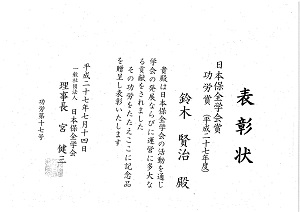 表彰状
日本保全学会賞
功労賞（平成二十七年度）
鈴木 賢治 殿
貴殿は日本保全学会の活動を通じ
学会の発展ならびに運営に多大な
る貢献をされました
その功労をたたえここに記念品
を贈呈し表彰いたします
平成二十七年七月十四日
一般社団法人 日本保全学会
理事長 宮 健三
功労第十七号